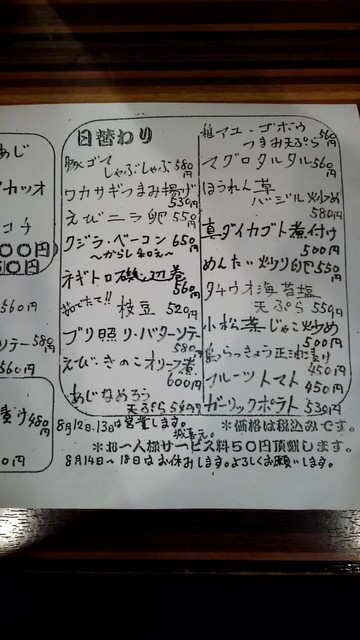 あじ
カツオ
コチ
00円
510円
560円
ソテー580円
560円
漬け480円
0円
日替わり
豚ゴマしゃぶしゃぶ 580円
ワカサギつまみ揚げ 530円
えびニラ卵 550円
クジラ・ベーコン 650円
〜からし和え〜
ネギトロ磯辺巻 560円
茹でたて!! 枝豆 520円
ブリ照り・バターソテー 580円
えび・きのこオリーブ煮 600円
あじなめろう
天ぷら 540円
稚アユ・ゴボウ 560円
つまみ天ぷら
マグロタルタル 560円
ほうれん草
バジル炒め 580円
真ダイカブト煮付け 500円
めんたい炒り卵 550円
タチウオ海苔塩
天ぷら 550円
小松菜じゃこ炒め 500円
島らっきょう正油漬け 450円
フルーツトマト 450円
ガーリックポテト 530円
8月12日、13日は営業します。
※価格は税込みです。
※お一人様サービス料50円頂戴します。
8月14日〜18日はお休みします。よろしくお願いします。